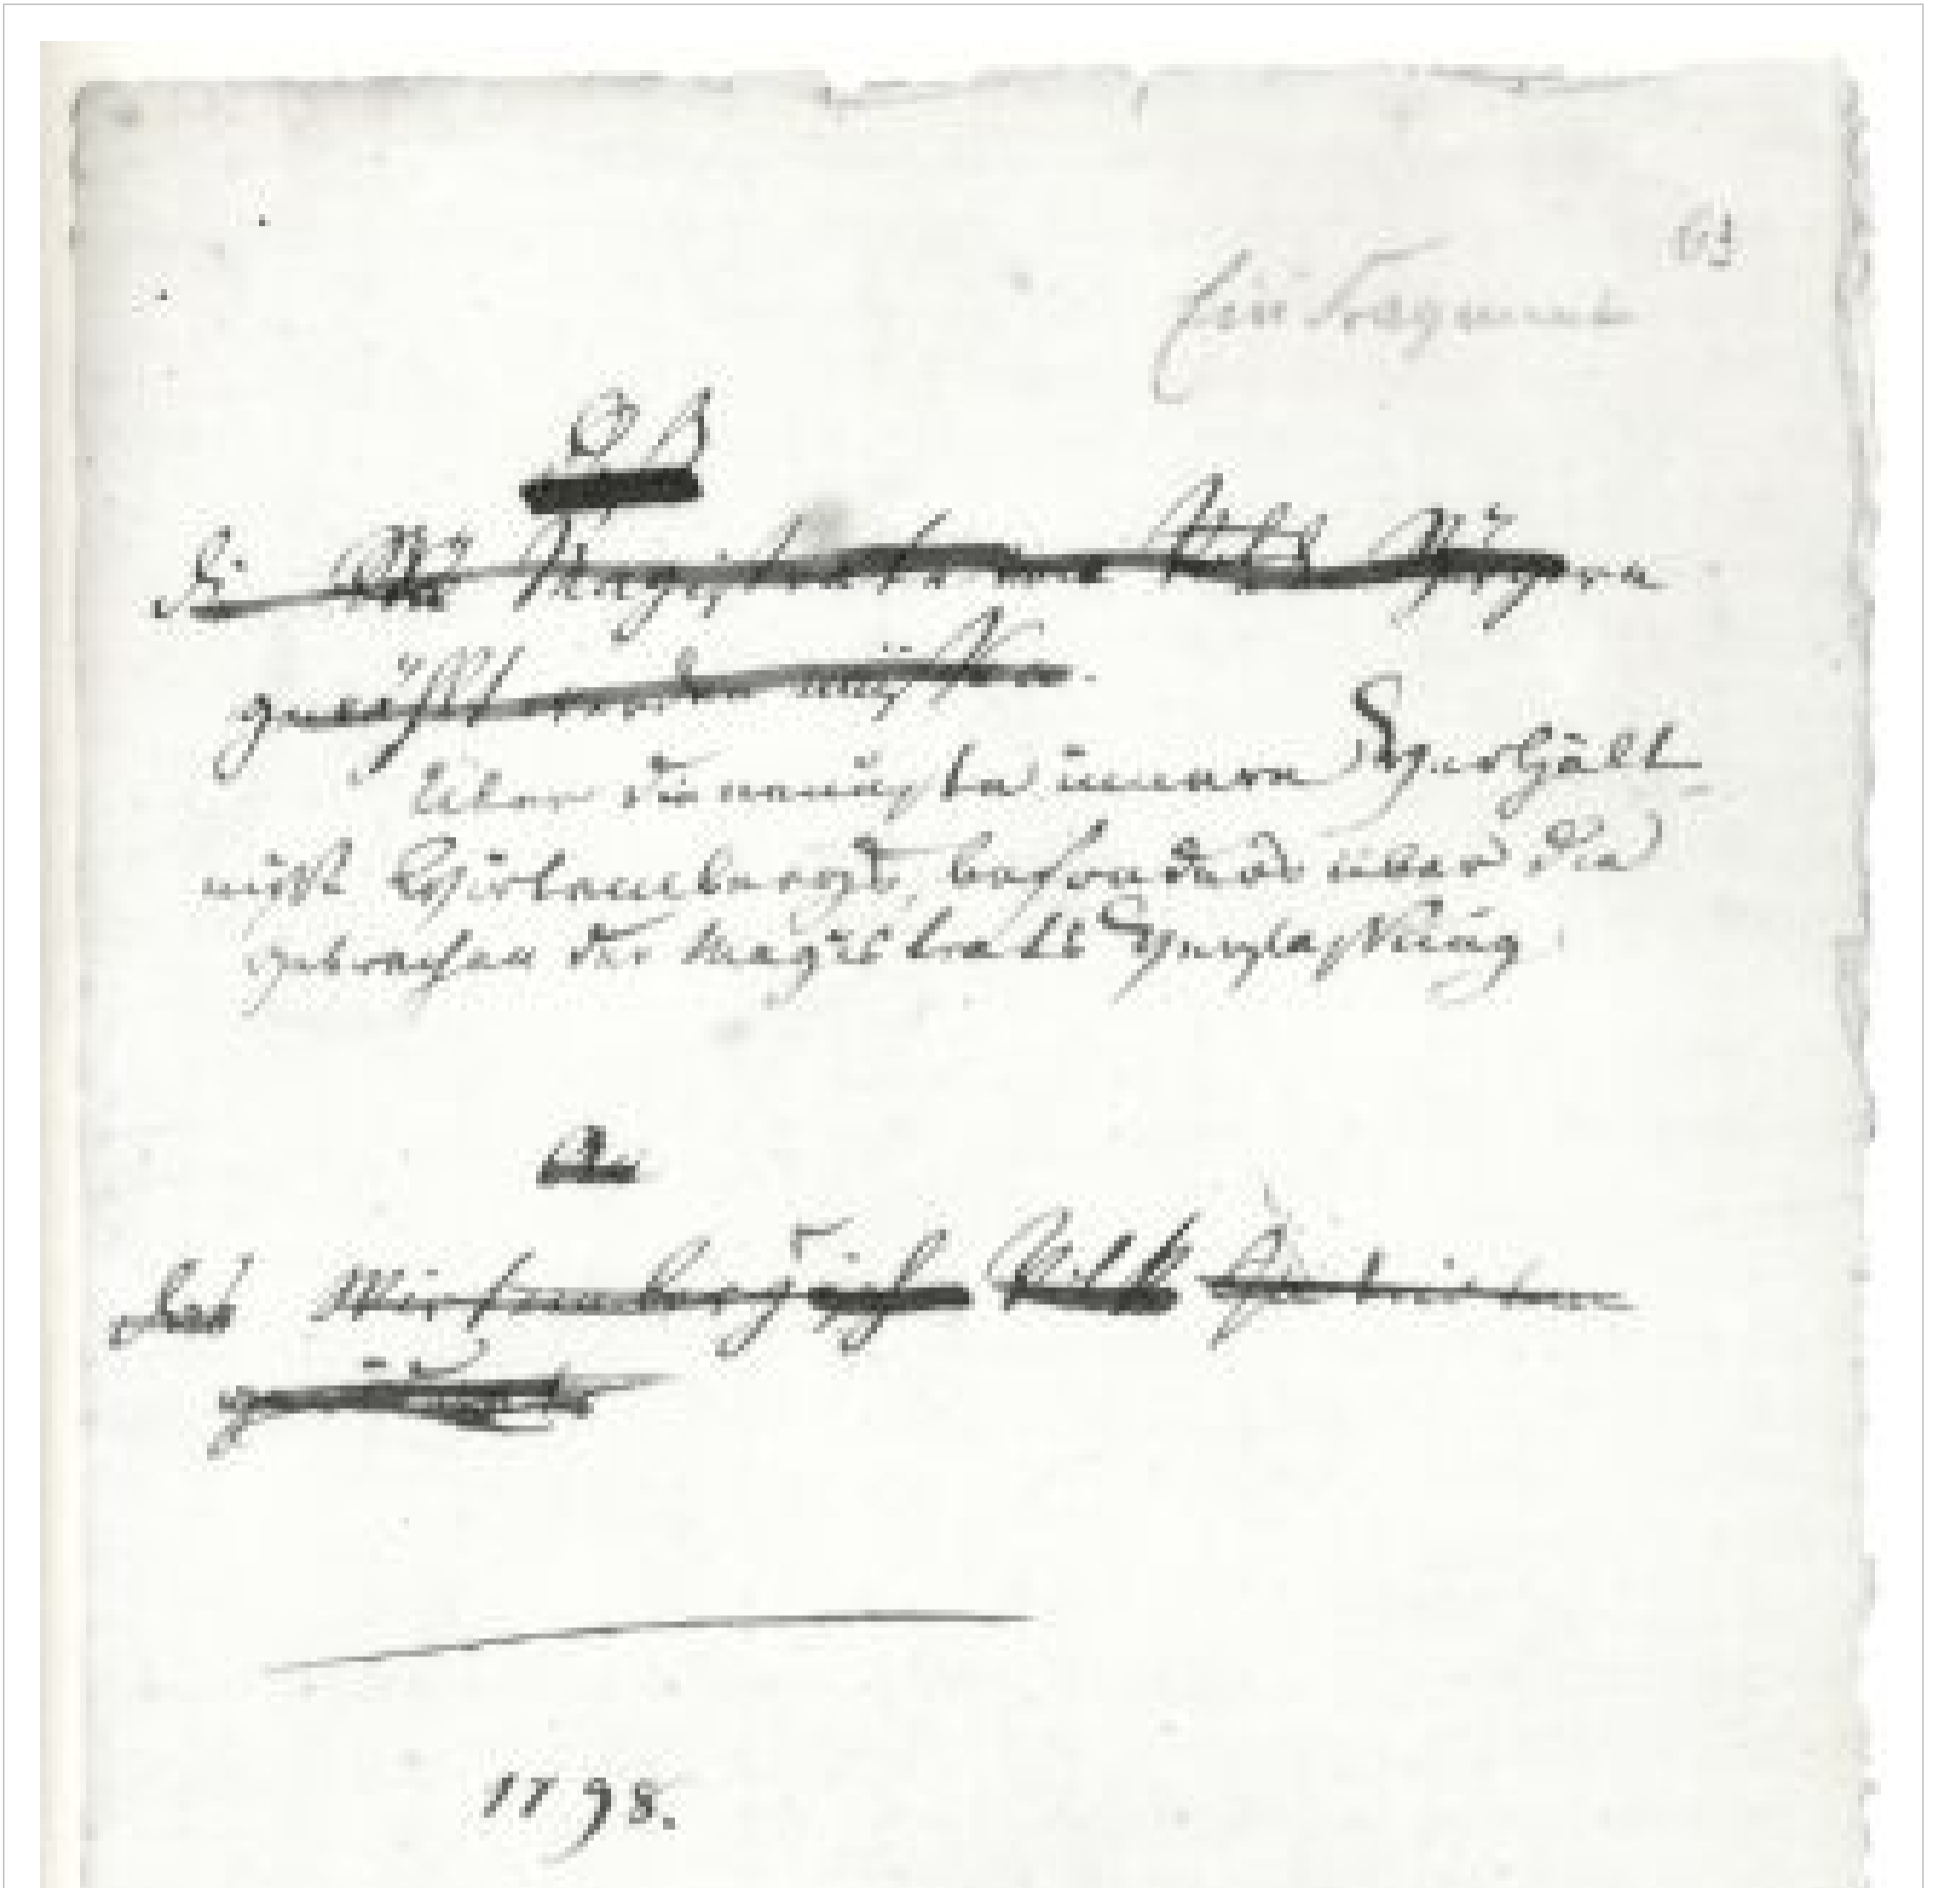 63
Ein Fragment
Daß
die Magistrate vom Volk Bürgern
gewählt werden müssen.
Über die neuesten innern Verhält-
nisse Würtembergs, besonders über die
Gebrechen der Magistratsverfassung.
An
das Wirtembergische Volk
1798.